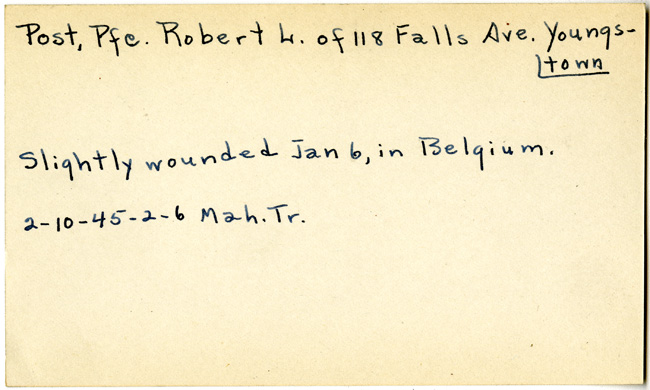 Post, Pfc. Robert L. of 118 Falls Ave. Youngs-
town
Slightly wounded Jan 6, in Belgium.
2-10-45-2-6 Mah. Tr.